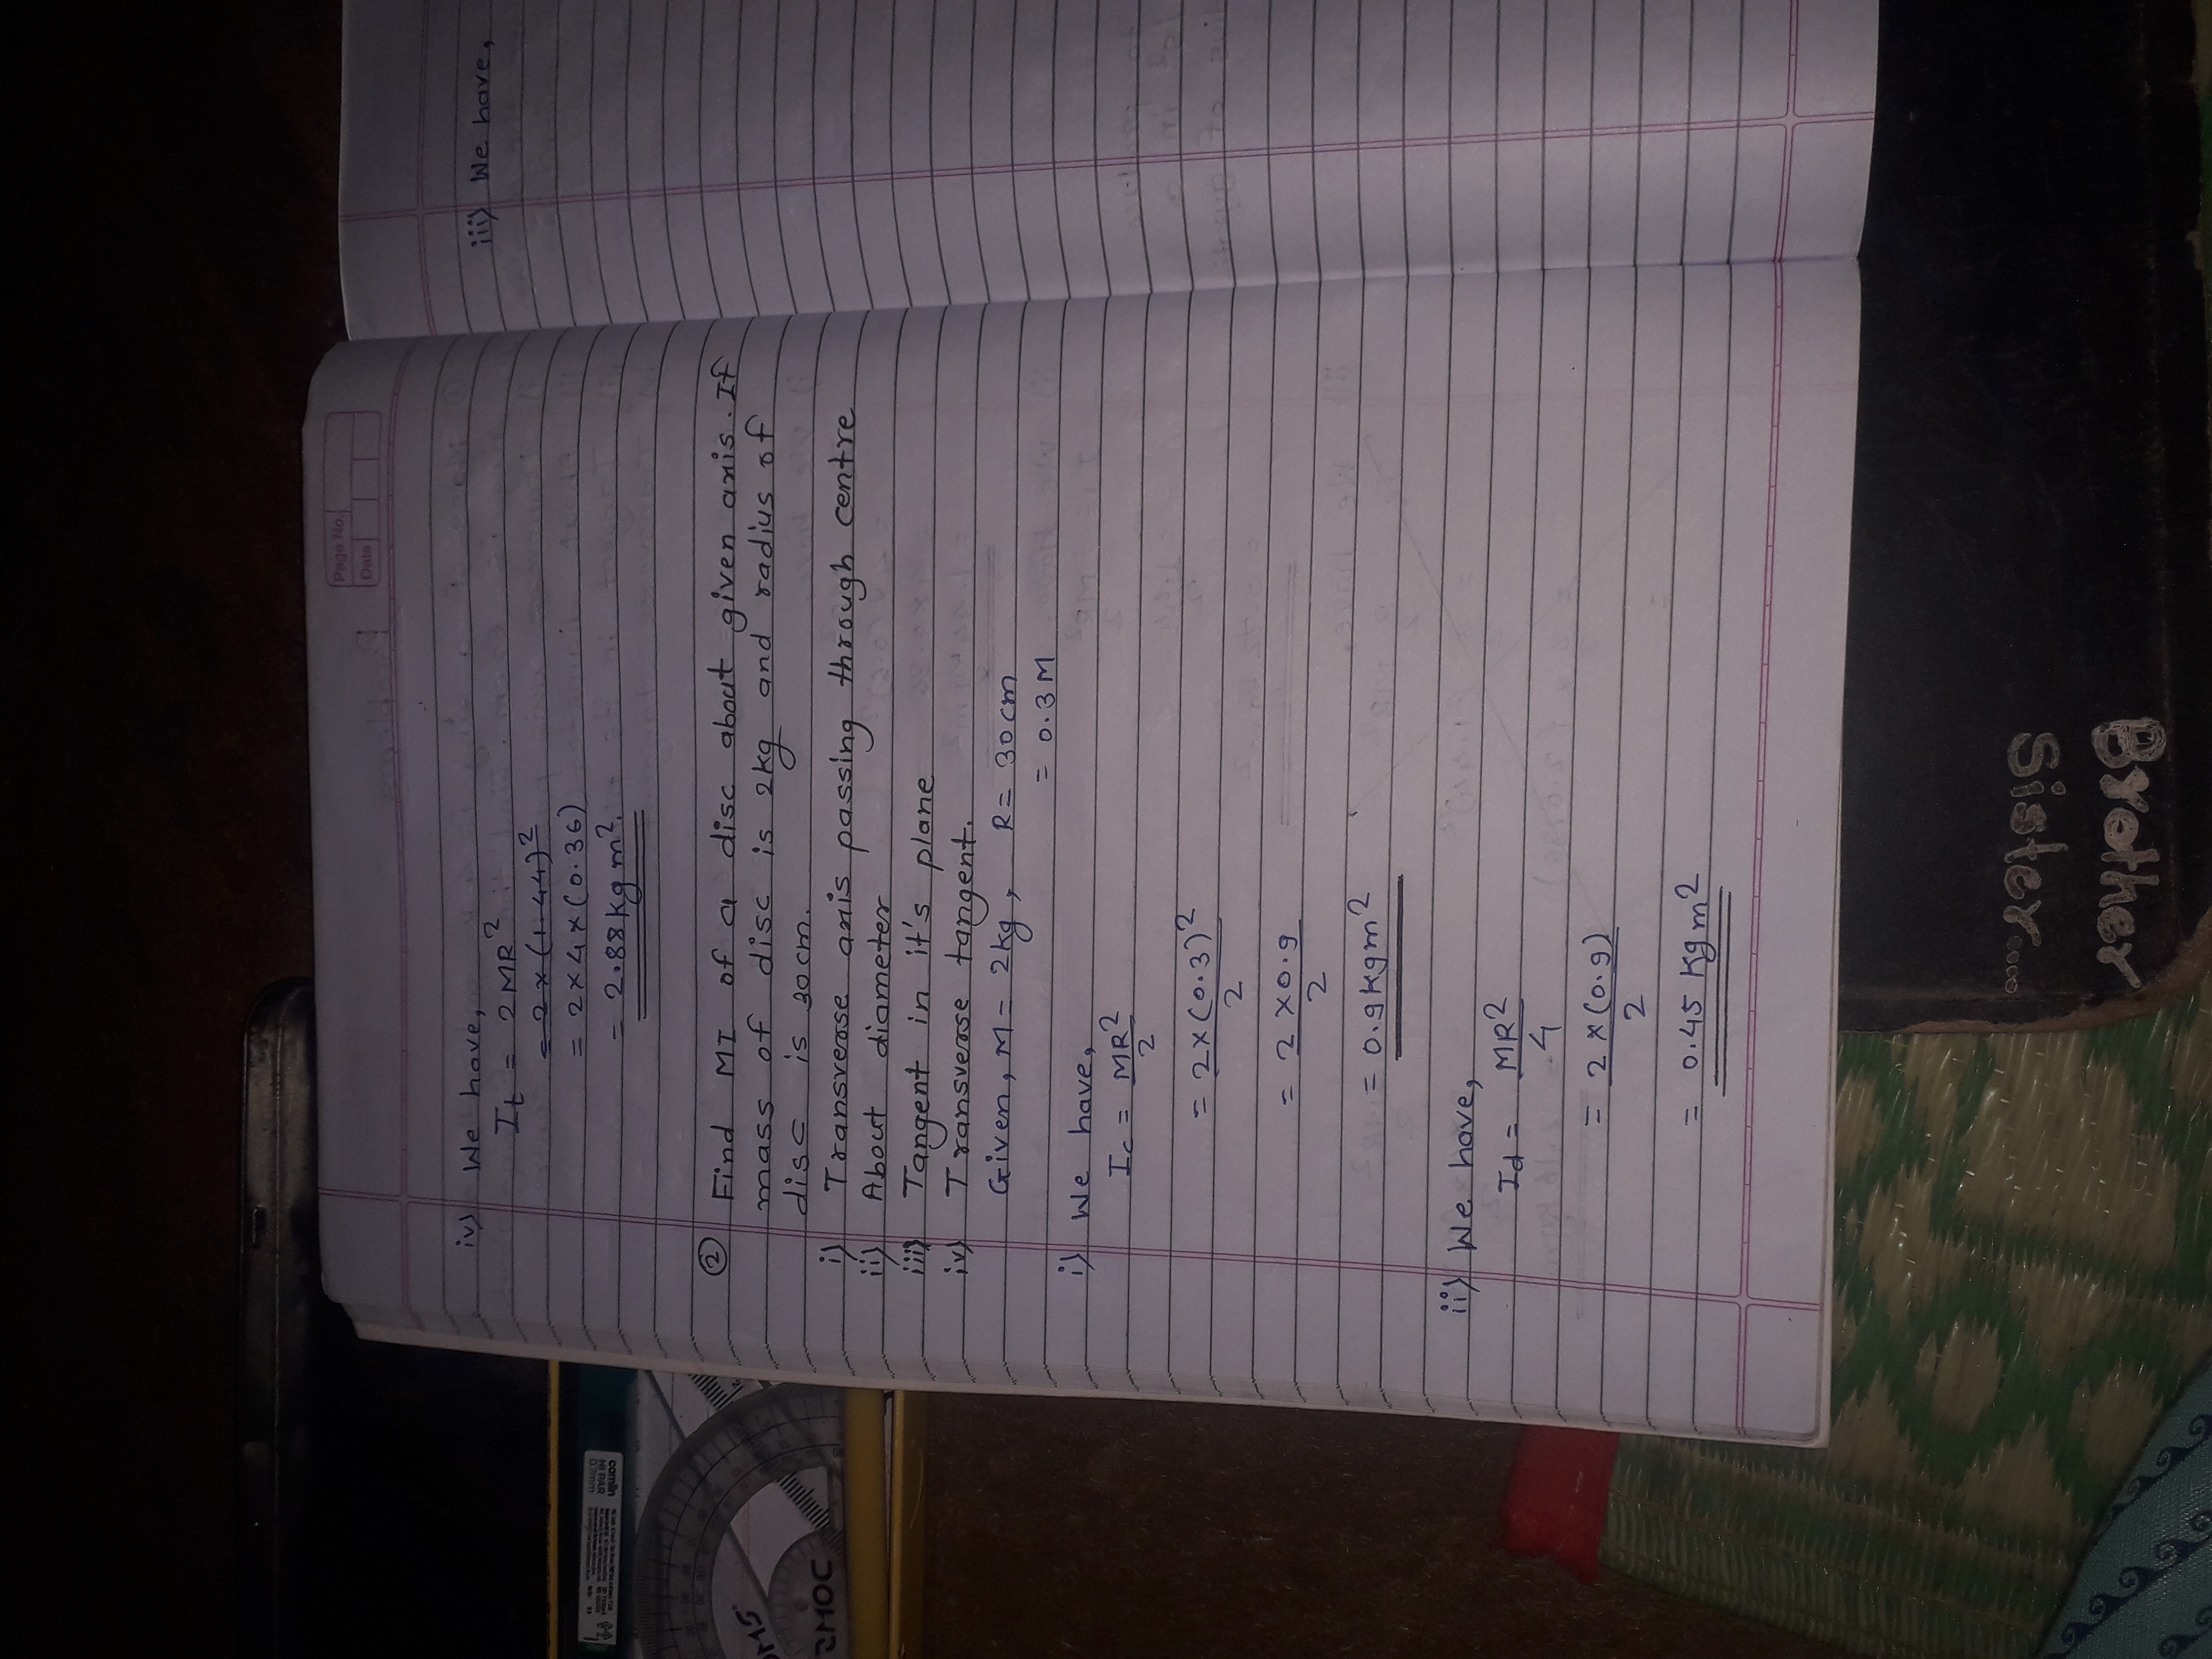 Page No.
Date
iv) We have,
It = 2MR²
= 2 × (1.44)²
= 2×4×(0.36)
= 2.88kg m².
② Find MI of a disc about given axis. If
mass of disc is 2kg and radius of
disc is 30cm.
i) Transverse axis passing through centre
ii) About diameter
iii) Tangent in it's plane
iv) Transverse tangent.
Given, M = 2kg, R = 30cm
= 0.3M
i) We have,
Ic = MR²/2
= 2×(0.3)²/2
= 2 ×0.9/2
= 0.9kgm²
ii) We have,
Id = MR²/4
= 2×(0.9)/2
= 0.45 Kgm²
iii) We have,
camlin
HI PAR
0.3mm
OMS
Sister....
Brother